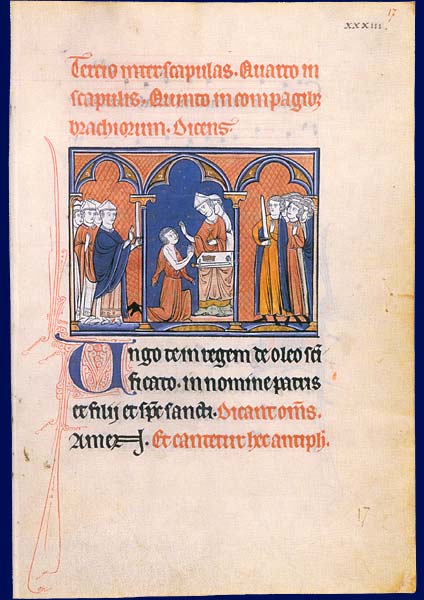 17
xxxiii.
Tertio inter scapulas. Quarto in
scapulis. Quinto in compagib;
brachiorum. Dicens.
Ungo te in regem de oleo sc̄i
ficato. in nomine patris
et filij et sp̄c sancti. Dicant om̄s.
Amen. Et cantetur hec antiph̄.
17